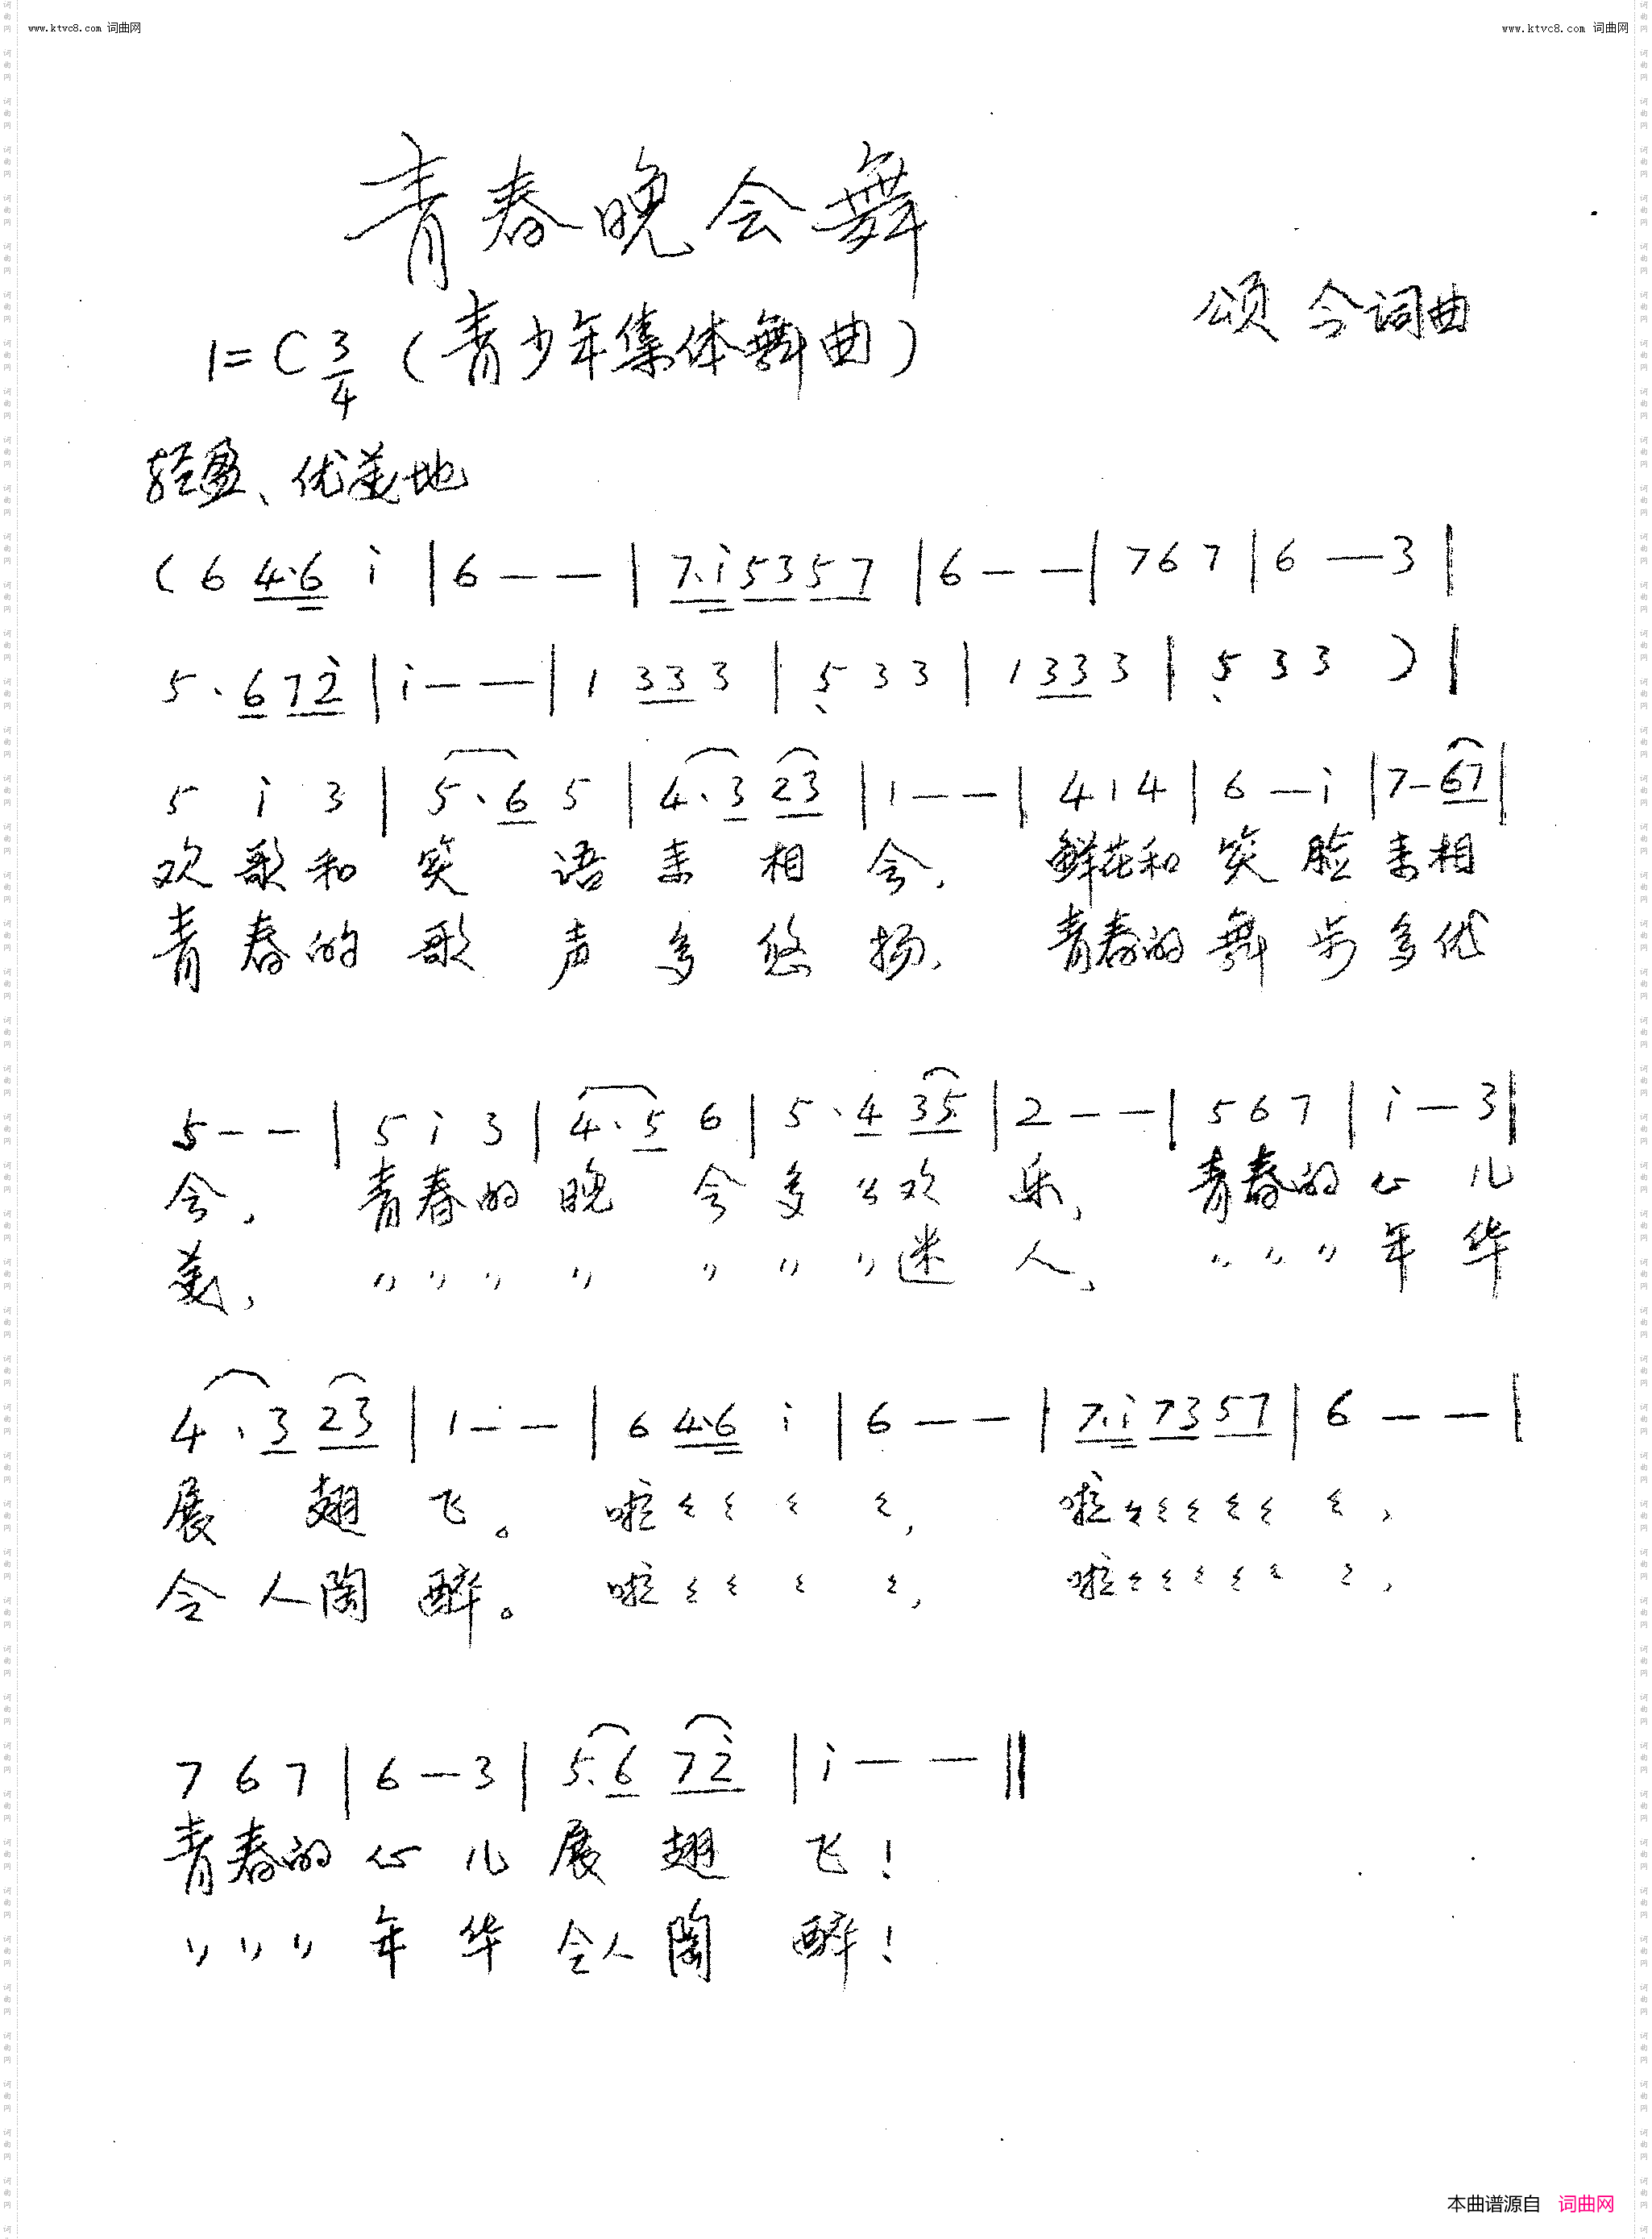 www.ktvc8.com 词曲网
www.ktvc8.com 词曲网
青春晚会舞
颂今词曲
1=C 3/4 (青少年集体舞曲)
轻盈、优美地
(6 4·6 i | 6 — — | 7·i 5357 | 6 — — | 7 6 7 | 6 — 3 |
5 · 6 7 2̇ | i — — | 1 3 3 3 | 5̣ 3 3 | 1 3 3 3 | 5̣ 3 3 ) |
5 i 3 | 5·6 5 | 4·3 23 | 1 — — | 4 1 4 | 6 — i | 7 — 67 |
欢歌和笑语来相会, 鲜花和笑脸来相
青春的歌声多悠扬, 青春的舞步多优
5 — — | 5 i 3 | 4·5 6 | 5·4 35 | 2 — — | 5 6 7 | i — 3 |
会, 青春的晚会多么欢乐, 青春的心儿
美, 〃〃〃〃〃〃〃迷人, 〃〃〃年华
4·3 23 | 1 — — | 6 4·6 i | 6 — — | 7·i 7357 | 6 — — |
展翅飞。 啦々々々々, 啦々々々々々々,
令人陶醉。 啦々々々々, 啦々々々々々々,
7 6 7 | 6 — 3 | 5·6 7 2̇ | i — — ‖
青春的心儿展翅飞!
〃〃〃年华令人陶醉!
本曲谱源自 词曲网